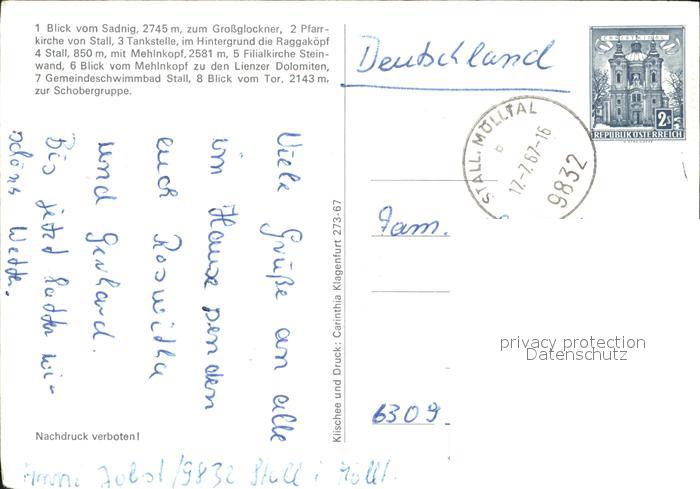 1 Blick vom Sadnig, 2745 m, zum Großglockner, 2 Pfarr-
kirche von Stall, 3 Tankstelle, im Hintergrund die Raggaköpf
4 Stall, 850 m, mit Mehlnkopf, 2581 m, 5 Filialkirche Stein-
wand, 6 Blick vom Mehlnkopf zu den Lienzer Dolomiten,
7 Gemeindeschwimmbad Stall, 8 Blick vom Tor, 2143 m,
zur Schobergruppe.
Viele Grüße an alle
im Hause senden
euch Roswitha
und Gerhard.
Bis jetzt hatten wi-
schöns Wetter.
Nachdruck verboten!
9832 Stall i Möllt.
Klischee und Druck: Carinthia Klagenfurt 273-67
Deutschland
CHRISTKINDL
2 S
REPUBLIK ÖSTERREICH
STALL, MÖLLTAL
b
17.-7.67-16
9832
Fam.
privacy protection
Datenschutz
6309